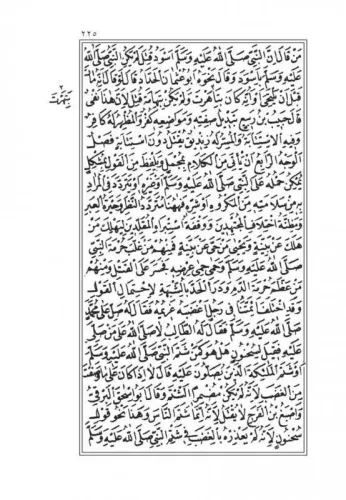 ٢٢٥
من قال ان النبى صلى الله عليه وسلم اسود قتل لم يكن النبى صلى الله
عليه وسلم باسود وقال نحوه ابو عثمان الحداد قال لو قال انه مات
قبل ان يلتحى او انه كان بتاهرت ولم يكن بتهامة قتل لان هذا نفى
قال حبيب بن ربيع تبديل صفته ومواضعه كفر والمظهر له كافر
وفيه الاستتابة والمسر له زنديق يقتل دون استتابة فصل
الوجه الرابع ان يأتى من الكلام بمجمل ويلفظ من القول بمشكل
يمكن حمله على النبى صلى الله عليه وسلم او غيره او يتردد فى المراد
به من سلامته من المكروه او شره فههنا متردد النظر وحيرة العبر
ومظنة اختلاف المجتهدين ووقفة استبراء المقلدين ليهلك من
هلك عن بينة ويحيى من حى عن بينة فمنهم من غلب حرمة النبى
صلى الله عليه وسلم وحمى حمى عرضه فجسر على القتل ومنهم
من عظم حرمة الدم ودرأ الحد بالشبهة لاحتمال القول
وقد اختلف ائمتنا فى رجل اغضبه غريمه فقال له صل على محمد
صلى الله عليه وسلم فقال له الطالب لا صلى الله على من صلى
عليه فقيل لسحنون هل هو كمن شتم النبى صلى الله عليه وسلم
او شتم الملئكة الذين يصلون عليه قال لا اذا كان على ما وصفت
من الغضب لانه لم يكن مضمرا الشتم وقال ابو اسحق البرقى
واصبغ بن الفرج لا يقتل لانه انما شتم الناس وهذا نحو قول
سحنون لانه لم يعذره بالغضب فى شتم النبى صلى الله عليه وسلم